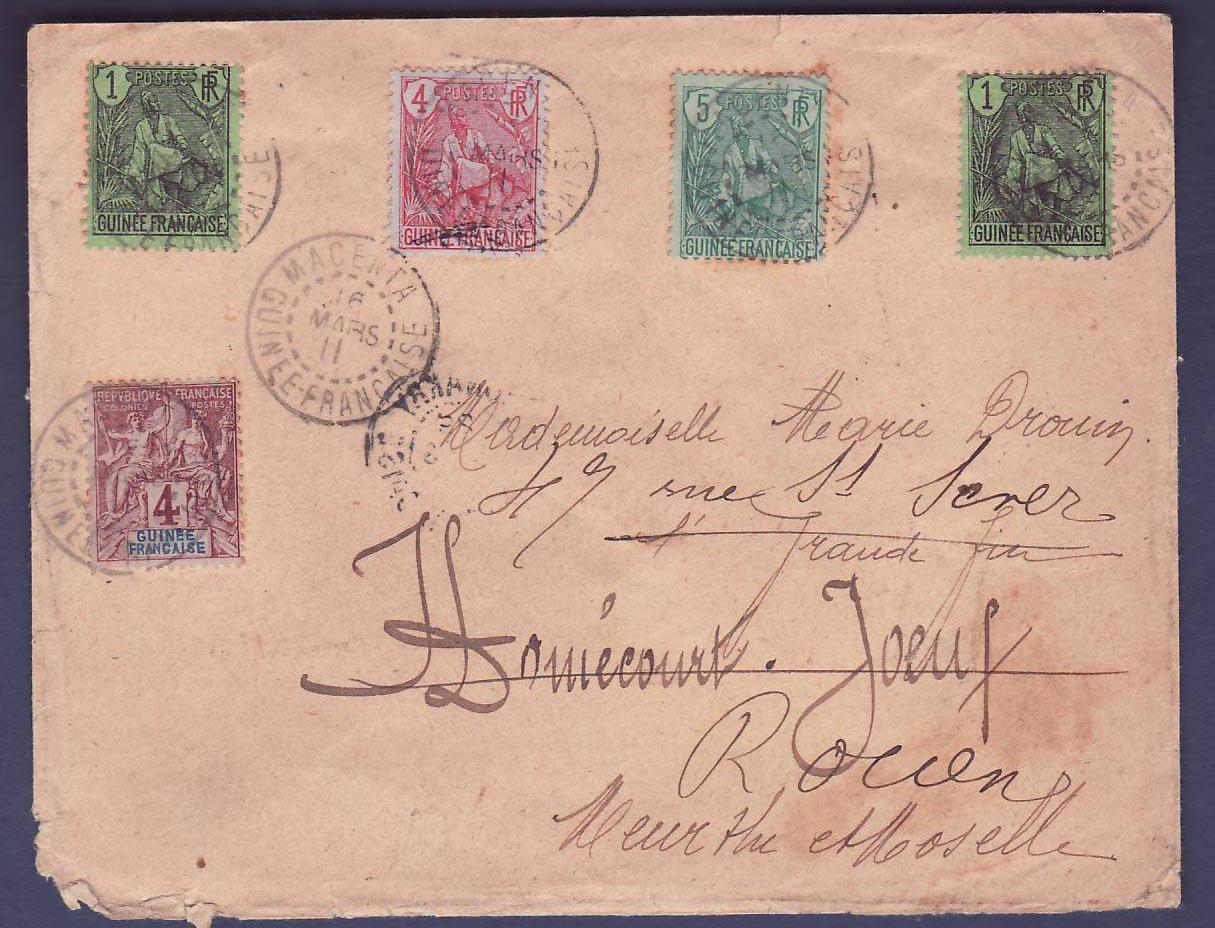 1 POSTES RF
GUINÉE FRANÇAISE
4 POSTES RF
GUINÉE FRANÇAISE
5 POSTES RF
GUINÉE FRANÇAISE
1 POSTES RF
GUINÉE FRANÇAISE
MACENTA
16
MARS
11
GUINÉE-FRANÇAISE
REPVBLIQVE FRANÇAISE
COLONIES POSTES
4
GUINÉE
FRANÇAISE
Mademoiselle Marie Drouin
47 rue St Sever
Grande
Homécourt. Joeuf
Rouen
Meurthe et Moselle